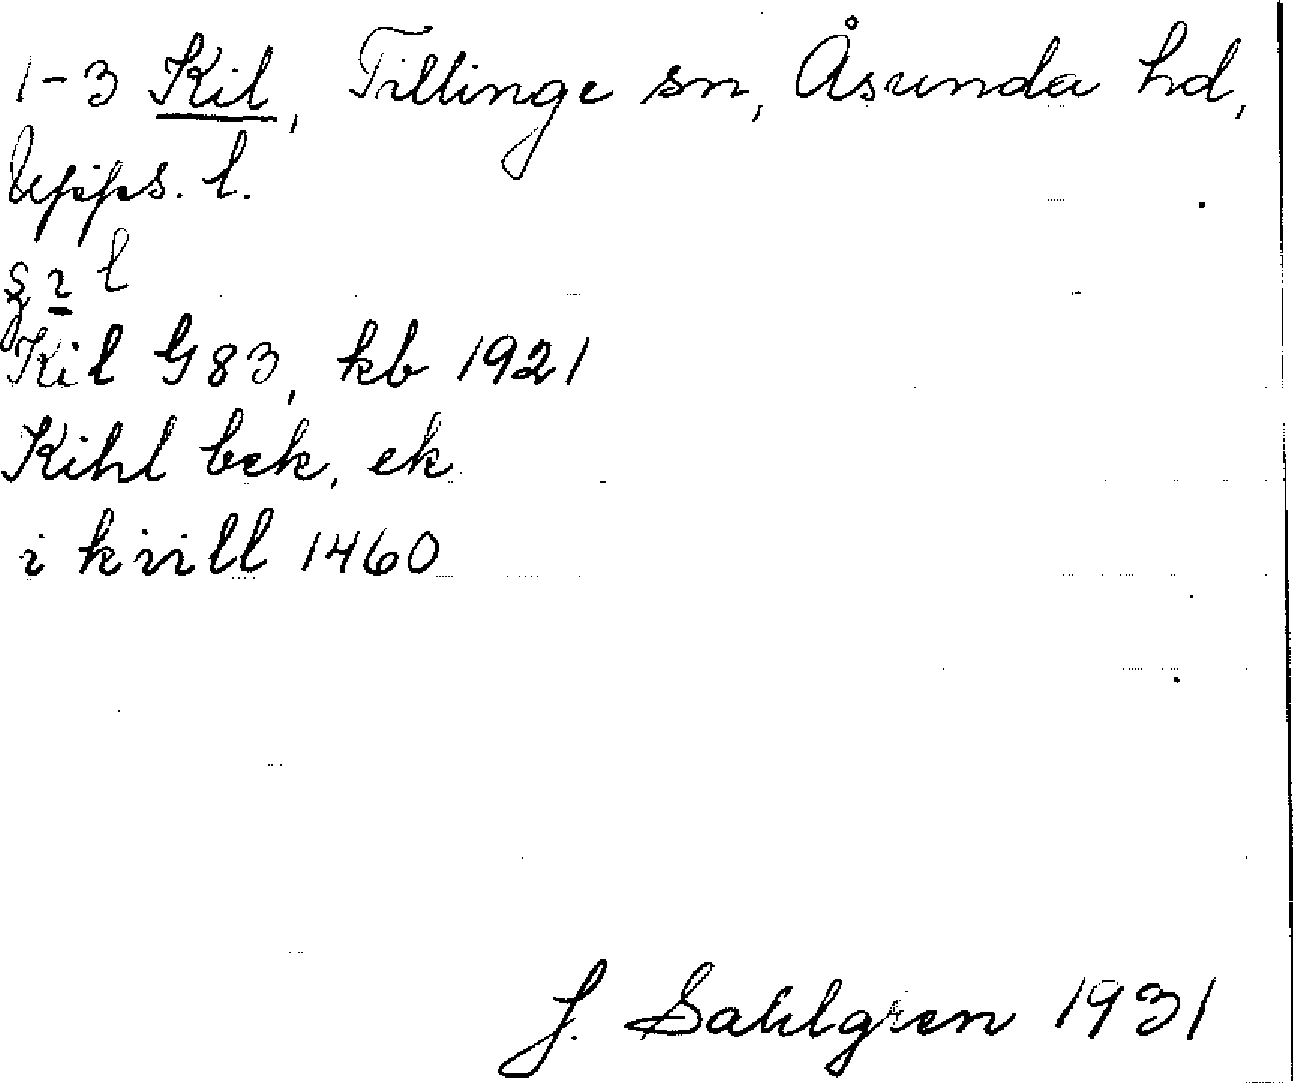 1-3 Kil, Tillinge sn, Åsunda hd,
Upps. l.
Kil G83, kb 1921
Kihl bek, ek
i kvill 1460
J. Sahlgren 1931